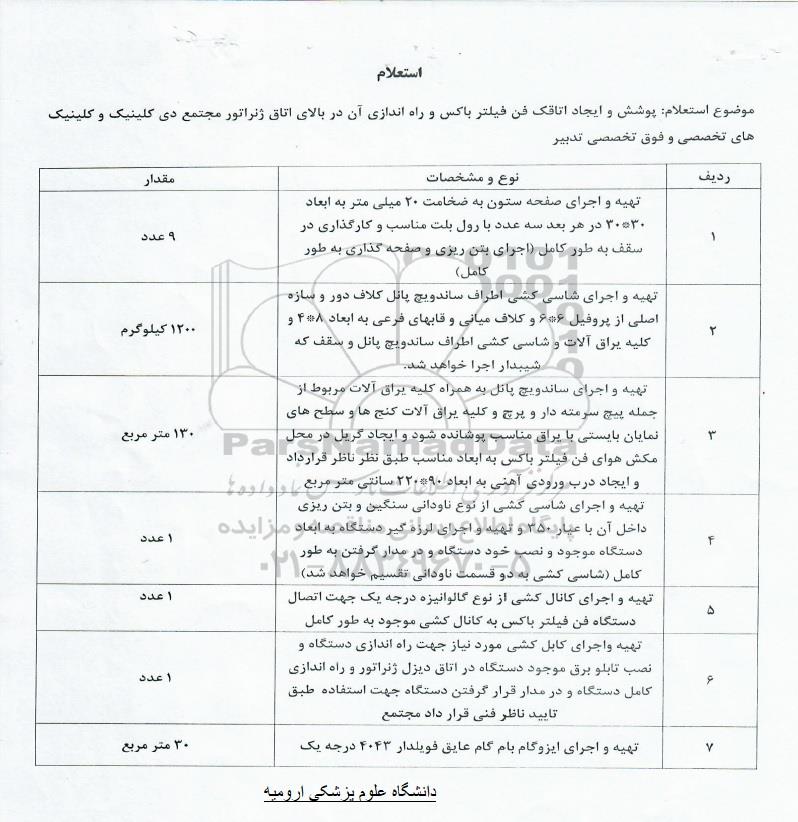 استعلام
موضوع استعلام: پوشش و ایجاد اتاقک فن فیلتر باکس و راه اندازی آن در بالای اتاق ژنراتور مجتمع دی کلینیک و کلینیک
های تخصصی و فوق تخصصی تدبیر
ردیف نوع و مشخصات مقدار
تهیه و اجرای صفحه ستون به ضخامت ۲۰ میلی متر به ابعاد
۳۰*۳۰ در هر بعد سه عدد با رول بلت مناسب و کارگذاری در
سقف به طور کامل (اجرای بتن ریزی و صفحه گذاری به طور
کامل)
۱
۹ عدد
تهیه و اجرای شاسی کشی اطراف ساندویچ پانل کلاف دور و سازه
اصلی از پروفیل ۶*۶ و کلاف میانی و قابهای فرعی به ابعاد ۸*۴ و
کلیه یراق آلات و شاسی کشی اطراف ساندویچ پانل و سقف که
شیبدار اجرا خواهد شد.
۲
۱۲۰۰ کیلوگرم
تهیه و اجرای ساندویچ پانل به همراه کلیه یراق آلات مربوط از
جمله پیچ سرمته دار و پرچ و کلیه یراق آلات کنج ها و سطح های
نمایان بایستی با یراق مناسب پوشانده شود و ایجاد گریل در محل
مکش هوای فن فیلتر باکس به ابعاد مناسب طبق نظر ناظر قرارداد
و ایجاد درب ورودی آهنی به ابعاد ۹۰*۲۲۰ سانتی متر مربع
۳
۱۳۰ متر مربع
تهیه و اجرای شاسی کشی از نوع ناودانی سنگین و بتن ریزی
داخل آن با عیار ۲۵۰ و تهیه و اجرای لرزه گیر دستگاه به ابعاد
دستگاه موجود و نصب خود دستگاه و در مدار گرفتن به طور
کامل (شاسی کشی به دو قسمت ناودانی تقسیم خواهد شد)
۴
۱ عدد
تهیه و اجرای کانال کشی از نوع گالوانیزه درجه یک جهت اتصال
دستگاه فن فیلتر باکس به کانال کشی موجود به طور کامل
۵
۱ عدد
تهیه واجرای کابل کشی مورد نیاز جهت راه اندازی دستگاه و
نصب تابلو برق موجود دستگاه در اتاق دیزل ژنراتور و راه اندازی
کامل دستگاه و در مدار قرار گرفتن دستگاه جهت استفاده طبق
تایید ناظر فنی قرار داد مجتمع
۶
۱ عدد
۷ تهیه و اجرای ایزوگام بام گام عایق فویلدار ۴۰۴۳ درجه یک ۳۰ متر مربع
دانشگاه علوم پزشکی ارومیه
ParsNamadData
پایگاه اطلاع رسانی مناقصه و مزایده
۰۲۱-۸۸۳۴۹۶۷۰-۵